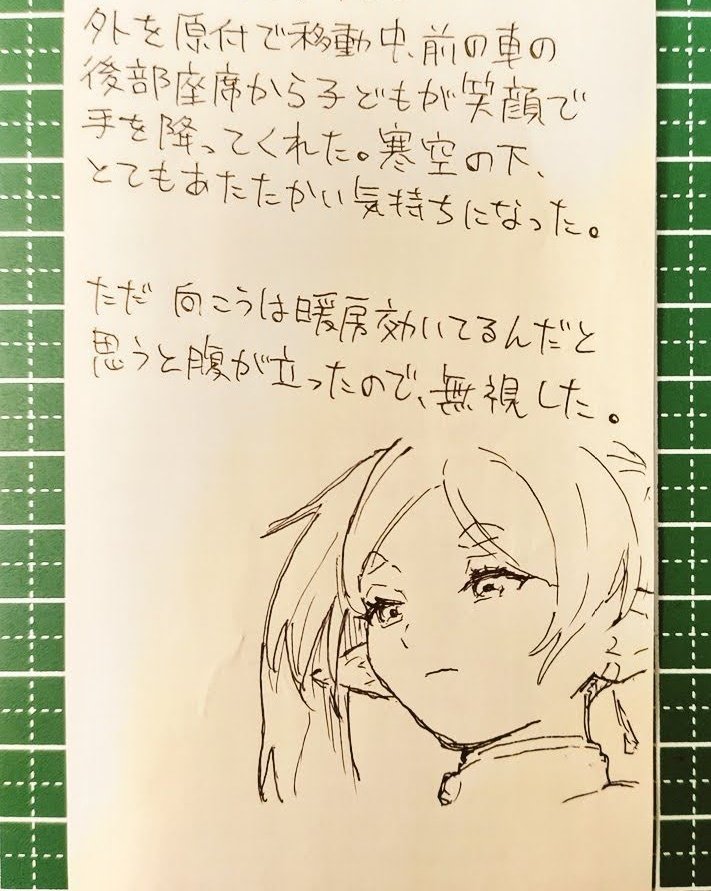 外を原付で移動中、前の車の
後部座席から子どもが笑顔で
手を降ってくれた。寒空の下、
とてもあたたかい気持ちになった。
ただ 向こうは暖房効いてるんだと
思うと腹が立ったので、無視した。